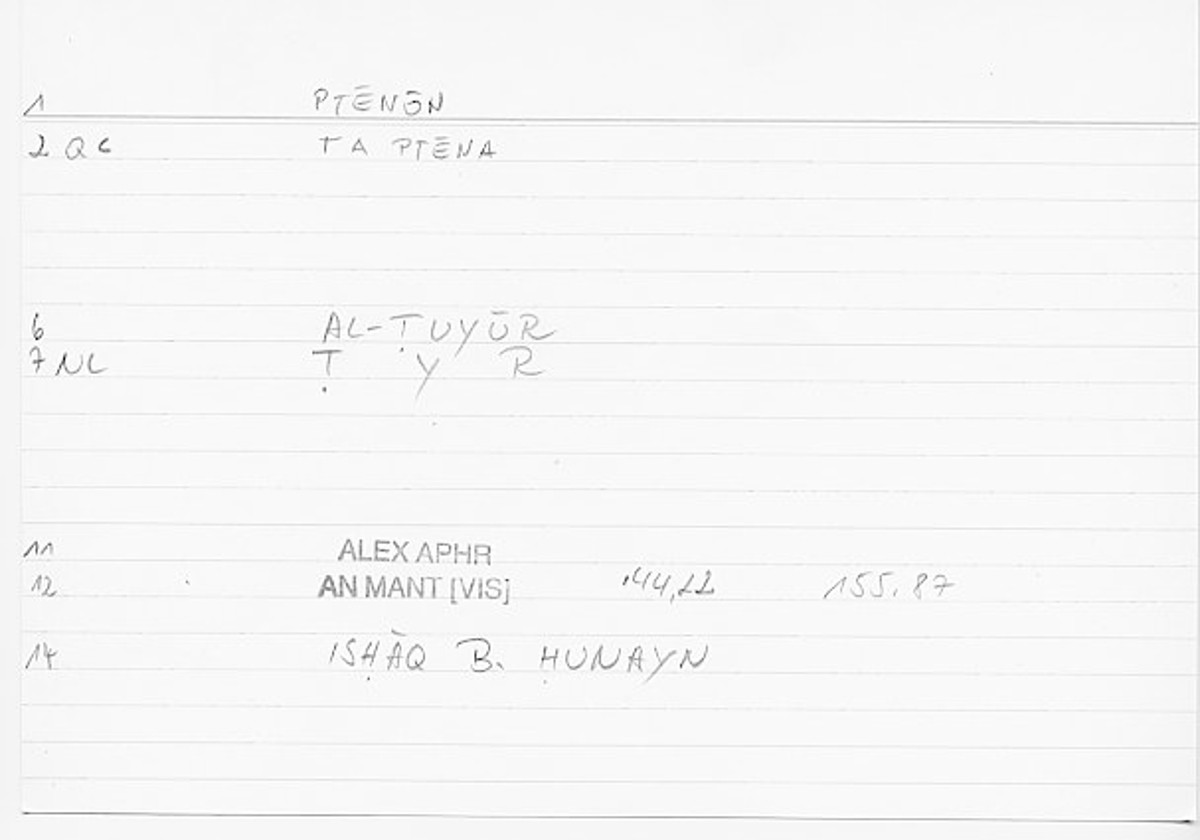 1 PTĒNŌN
2 Q C TA PTĒNA
6 AL-ṬUYŪR
7 NL Ṭ Y R
11 ALEX APHR
12 AN MANT [VIS] 144,22 155.87
14 ISḤĀQ B. ḤUNAYN